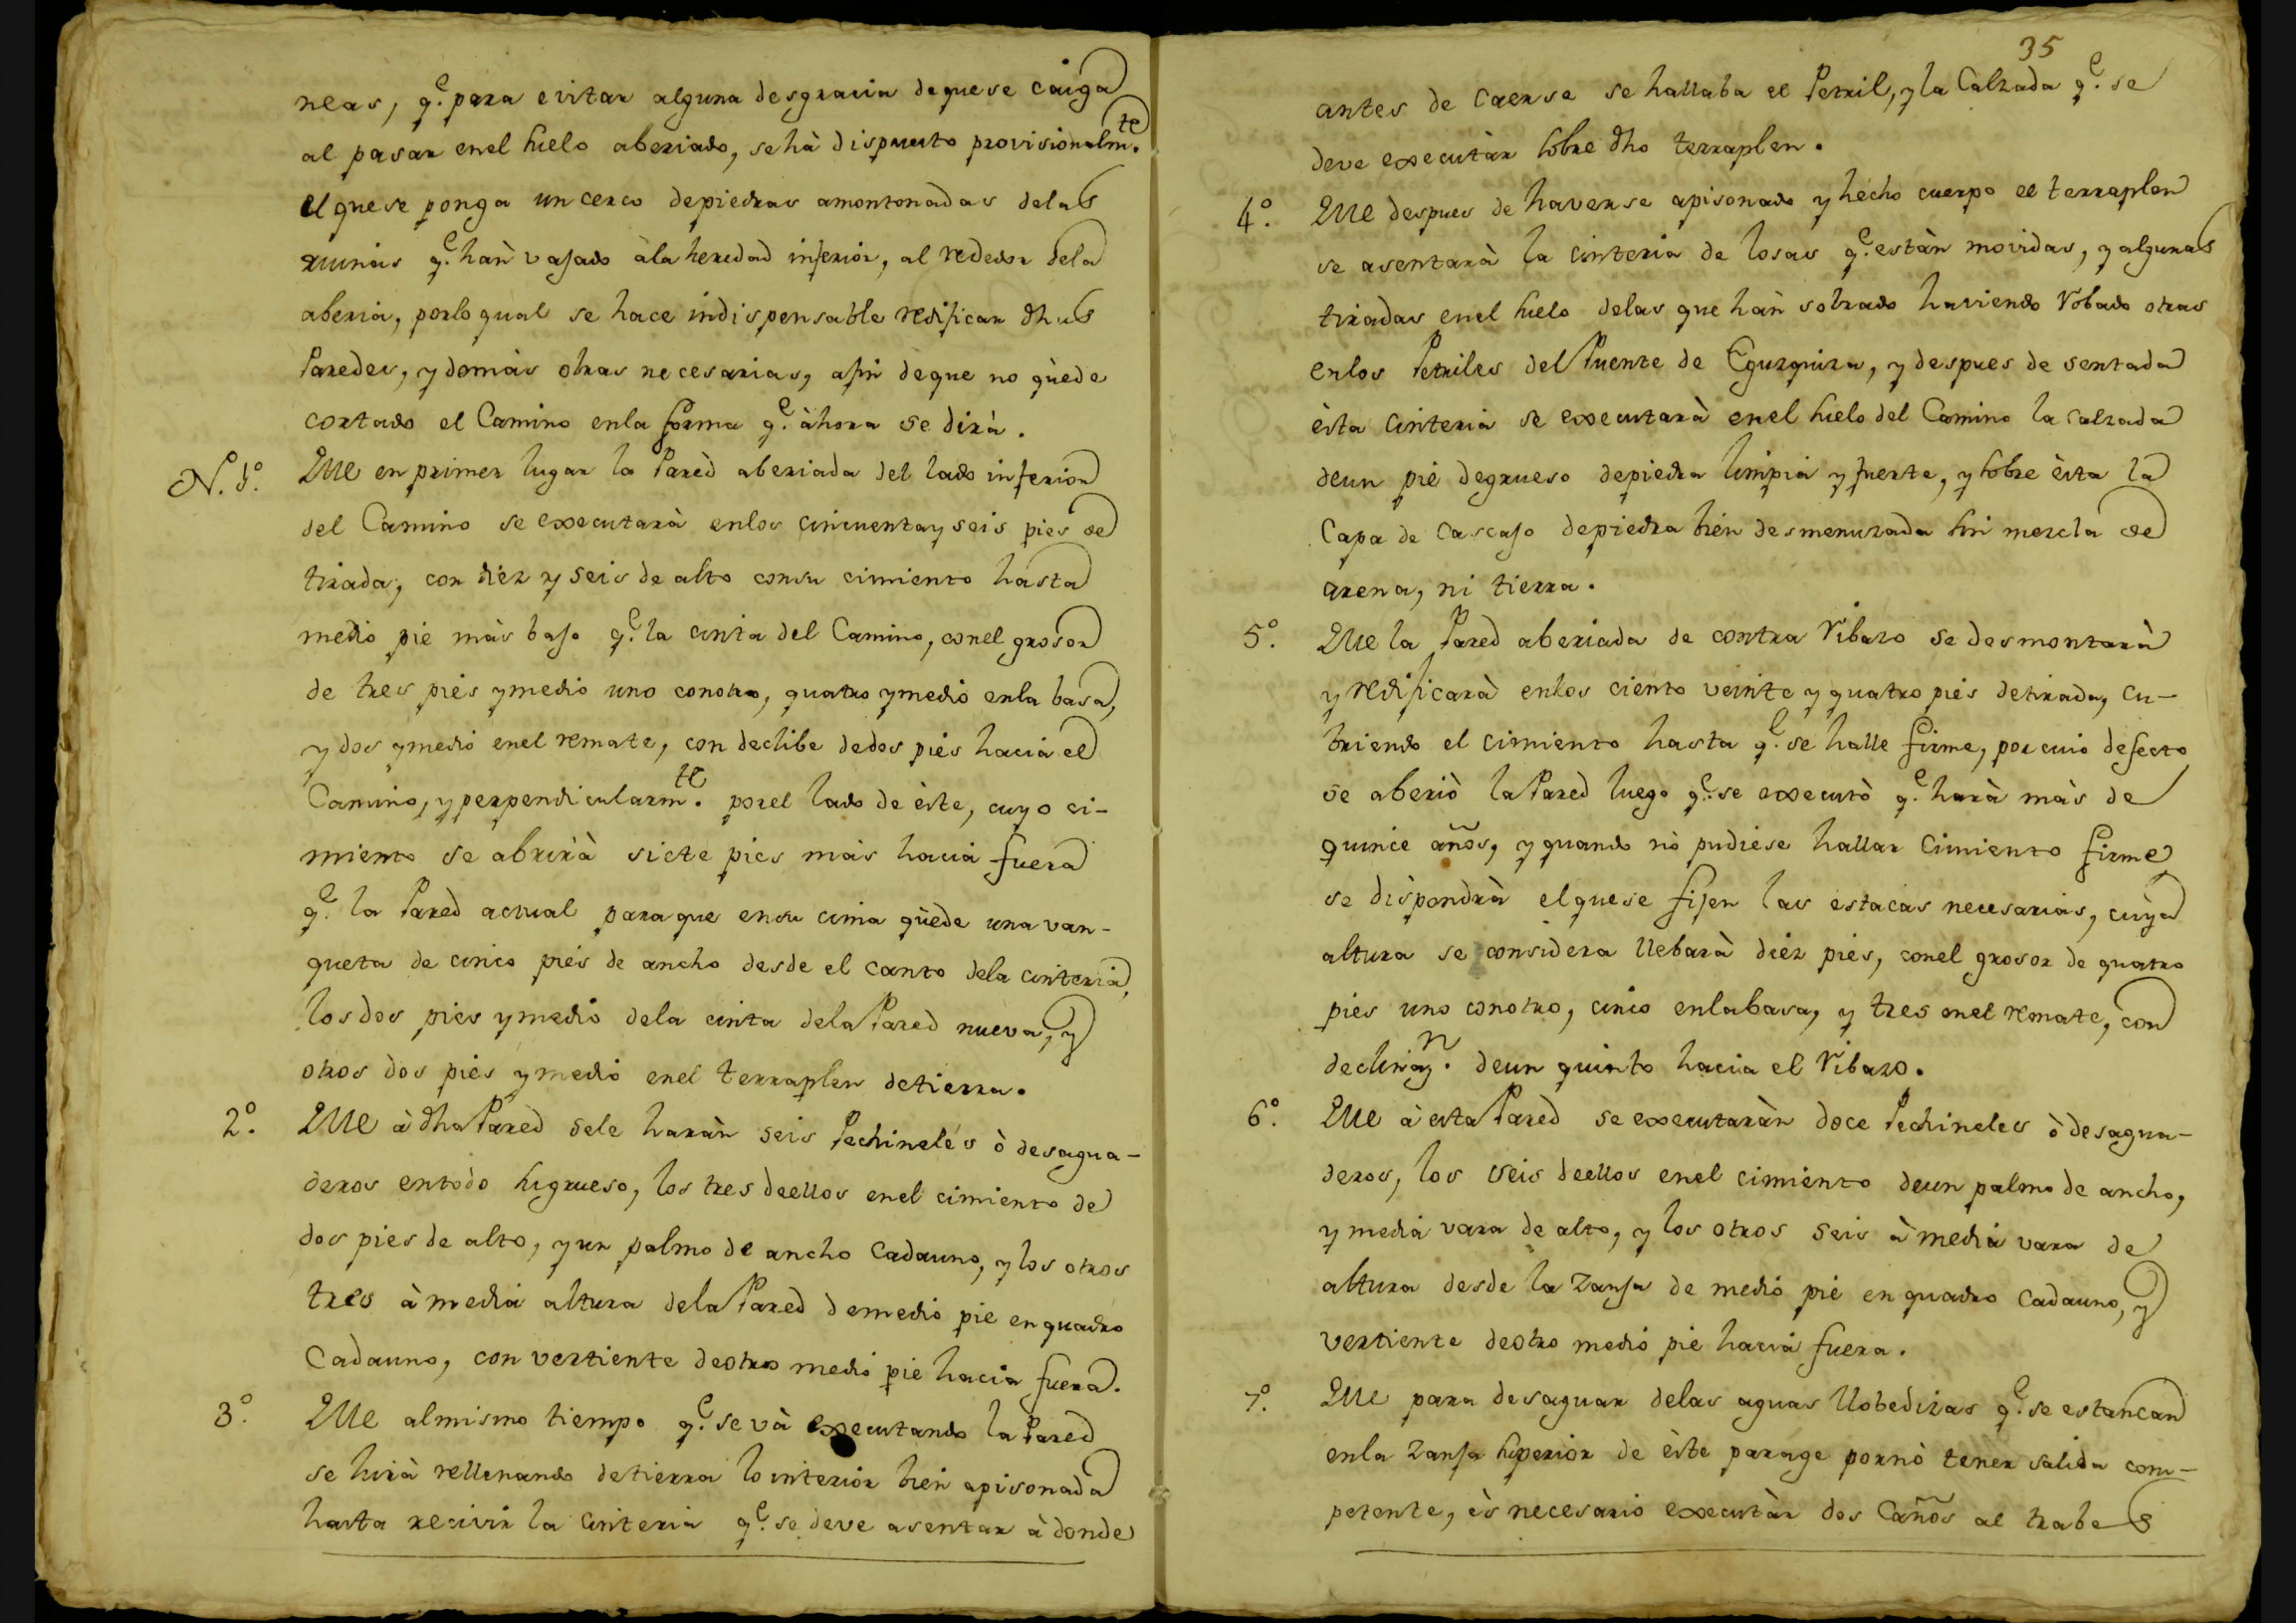 neas, q.e para evitar alguna desgracia de que se caiga
al pasar en el suelo aberiado, se hà dispuesto provisionalm.te
el que se ponga un cerco de piedras amontonadas de las
ruinas q.e hàn vajado à la heredad inferiòr, al rededor de la
aberia, por lo qual se hace indispensable redificar dhas
Paredes, y demàs obras necesarias, afin de que no quède
cortado el Camino en la forma q.e àhora se dirà.
N.o 1.o Que en primer lugar la Parèd aberiada del lado inferior
del Camino se executarà en los cincuenta y seis pies de
tirada, con diez y seis de alto con su cimiento hasta
medio pie màs bajo q.e la cinta del Camino, con el grosor
de tres piés y medio uno con otro, quatro y medio en la basa,
y dos y medio en el remate, con declibe de dos piés hacia el
Camino, y perpendicularm.te por el lado de èste, cuyo ci-
miento se abrirà siete pies màs hacia fuera
q.e la Pared actual para que en su cima quède una van-
queta de cinco piés de ancho desde el canto de la cinteria,
los dos piés y medio de la cinta de la Pared nueva, y
otros dos piés y medio en el terraplen de tierra.
2.o Que à dha Parèd se le haràn seis Pechineles ò desagua-
deros en todo su grueso, los tres de ellos en el cimiento de
dos pies de alto, y un palmo de ancho cada uno, y los otros
tres à media altura de la Pared de medio pie en quadro
Cada uno, con vertiente de otro medio pie hacia fuera.
3.o Que al mismo tiempo q.e se và executando la Pared
se hirà rellenando de tierra lo interiòr bien apisonada
hasta recivir la cinteria q.e se deve asentar à donde
35
antes de caerse se hallaba el Petril, y la Calzada q.e se
deve executàr sobre dho terraplen.
4.o Que despues de haverse apisonado y hecho cuerpo el terraplen
se asentarà la cinteria de losas q.e estàn movidas, y algunas
tiradas en el suelo de las que hàn sobrado haviendo robado otras
en los Petriles del Puente de Eguzquiza, y despues de sentada
èsta cinteria se executarà en el suelo del Camino la calzada
de un piè de grueso de piedra limpia y fuerte, y sobre èsta la
Capa de cascajo de piedra bien desmenuzada sin mezcla de
arena, ni tierra.
5.o Que la Pared aberiada de contra ribazo se desmontarà
y redificarà en los ciento veinte y quatro piés de tirada, cu-
briendo el cimiento hasta q.e se halle firme, por cuio defecto
se aberiò la Pared luego q.e se executò q.e harà màs de
quince años, y quando nò pudiese hallar Cimiento firme
se dispondrà el que se fijen las estacas necesarias, cuya
altura se considera llebarà diéz piés, con el grosor de quatro
piés uno con otro, cinco en la basa, y tres en el remate, con
declinaz.n de un quinto hacia el Ribazo.
6.o Que à esta Pared se executaràn doce Pechineles ò desagua-
deros, los seis de ellos en el cimiento de un palmo de ancho,
y media vara de alto, y los otros seis à media vara de
altura desde la zanja de medio piè en quadro Cada uno, y
vertiente de otro medio piè hacia fuera.
7.o Que para desaguar de las aguas llobedizas q.e se estancan
en la zanja superiòr de èste parage por nò tener salida com-
petente, ès necesario executàr dos Caños al trabes